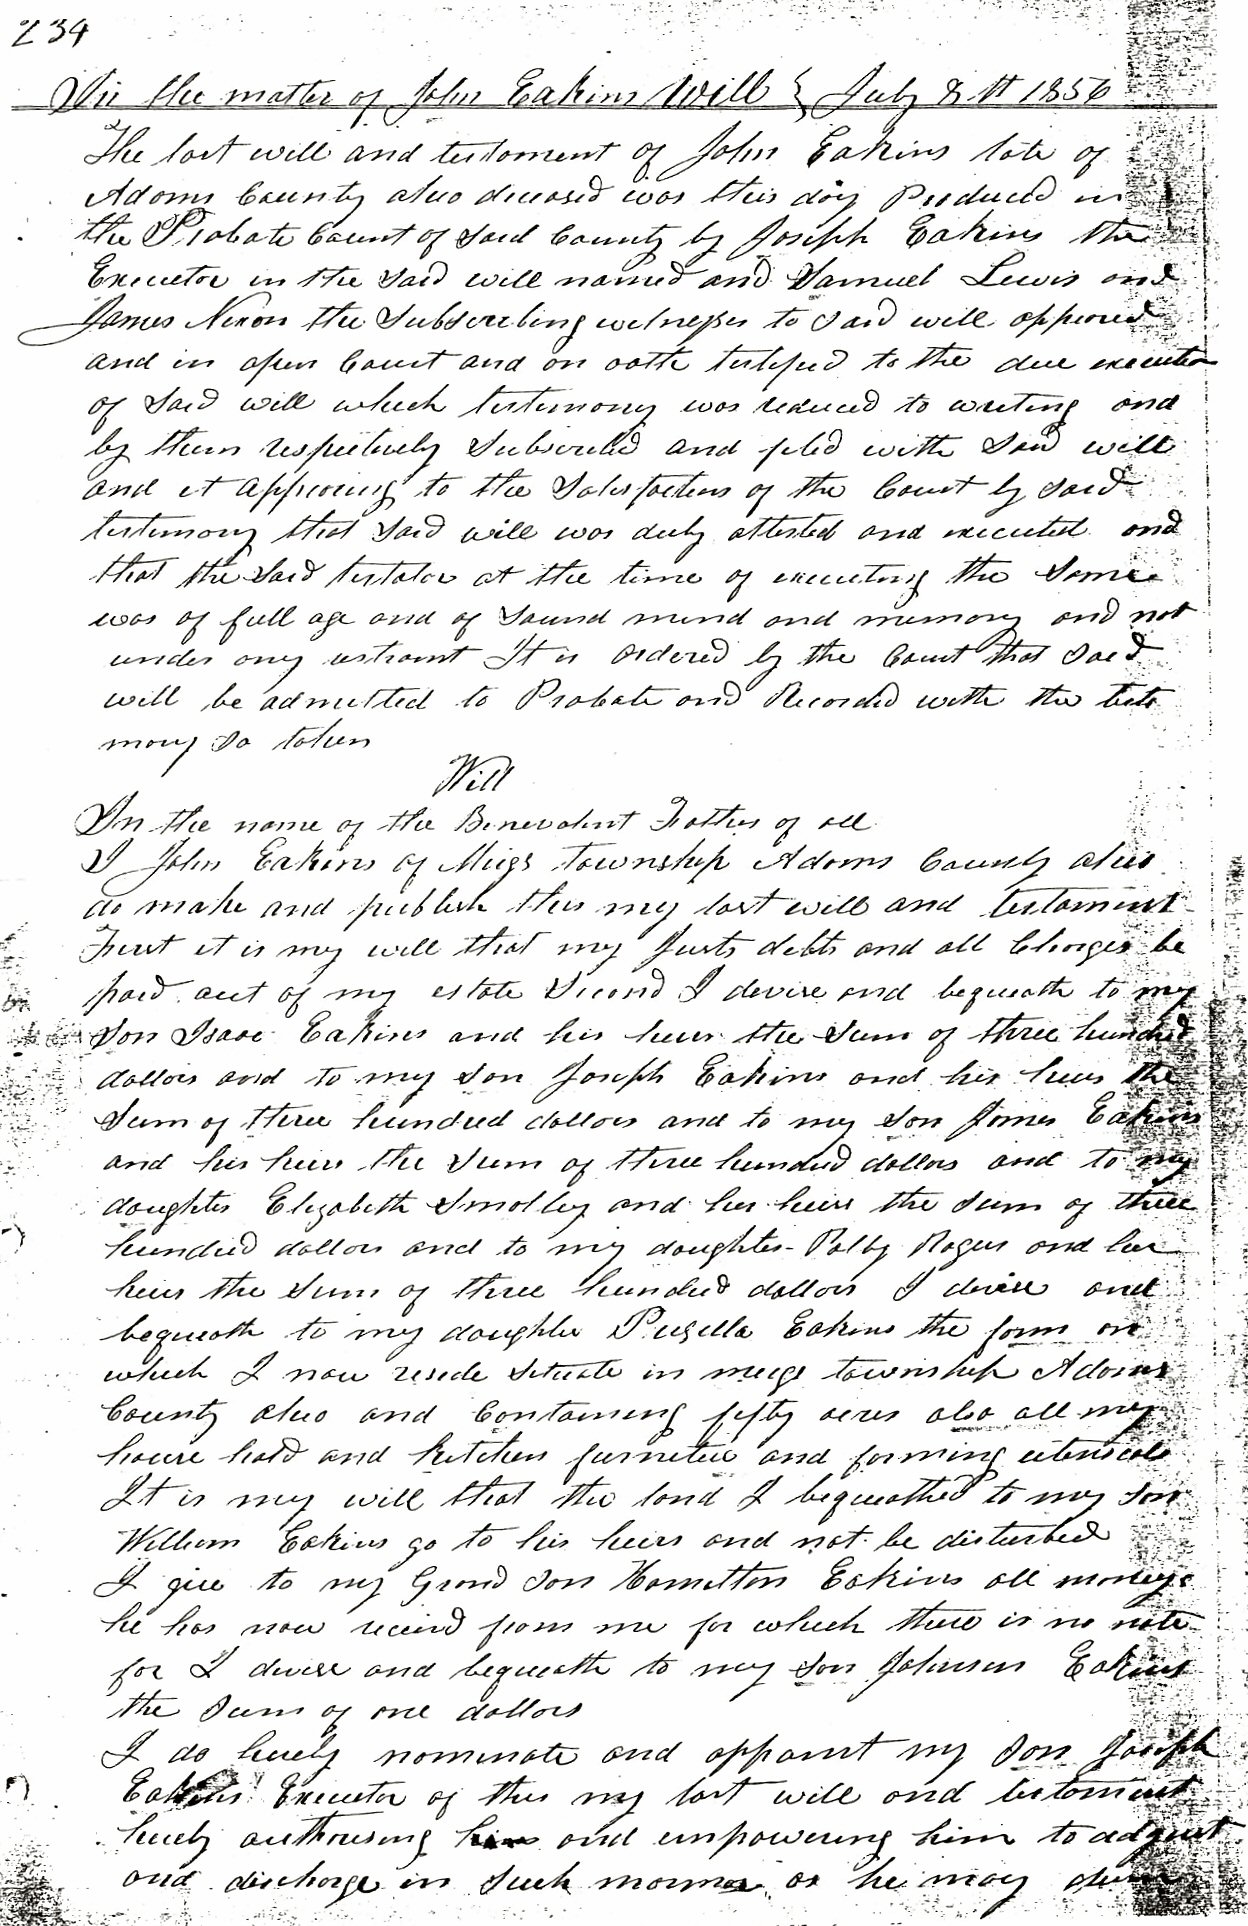 234
In the matter of John Eakins Will } July 8th 1856
The last will and testament of John Eakins late of
Adams County ohio deceased was this day Produced in
the Probate Court of Said County by Joseph Eakins the
Executor in the Said will named and Samuel Lewis and
James Nixon the Subscribing witnesses to Said will appeared
and in open Court and on oath testified to the due execution
of Said will which testimony was reduced to writing and
by them respectively Subscribed and filed with Said will
and it appearing to the Satisfaction of the Court by Said
testimony that Said will was duly attested and executed and
that the Said testator at the time of executing the Same
was of full age and of Sound mind and memory and not
under any restraint It is ordered by the Court that Said
will be admitted to Probate and Recorded with the testi
mony So taken
Will
In the name of the Benevolent Father of all
I John Eakins of Miegs township Adams County ohio
do make and publish this my last will and testament
First it is my will that my Justs debts and all Charges be
paid out of my estate Second I devise and bequeath to my
Son Isaac Eakins and his heirs the Sum of three hundred
dollars and to my Son Joseph Eakins and his heirs the
Sum of three hundred dollars and to my Son James Eakins
and his heirs the Sum of three hundred dollars and to my
daughter Elizabeth Smolley and her heirs the Sum of three
hundred dollars and to my daughter Polly Rogers and her
heirs the Sum of three hundred dollars I devise and
bequeath to my daughter Prisilla Eakins the farm on
which I now reside Situate in meigs township Adams
County ohio and Containing fifty acres also all my
house hold and kitchen furniture and farming utensials
It is my will that the land I bequeathed to my Son
William Eakins go to his heirs and not be disturbed
I give to my Grand Son Hamilton Eakins all moneys
he has now receivd from me for which there is no note
for I devise and bequeath to my Son Johnson Eakins
the Sum of one dollars
I do hereby nominate and appoint my Son Joseph
Eakins Executor of this my last will and testament
hereby authorising him and impowering him to adjust
and discharge in Such manner as he may deem